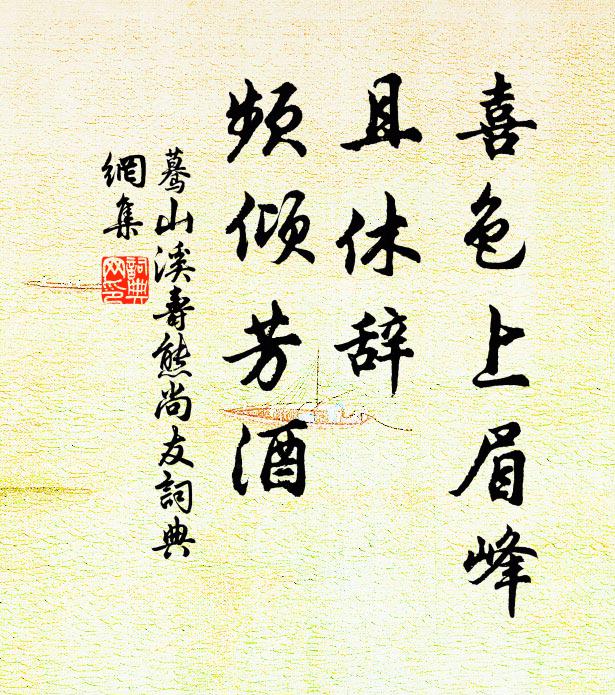 喜色上眉峰
且休辞
频倾芳酒
蓦山溪寿熊尚友詞典
網集
詞典
网印